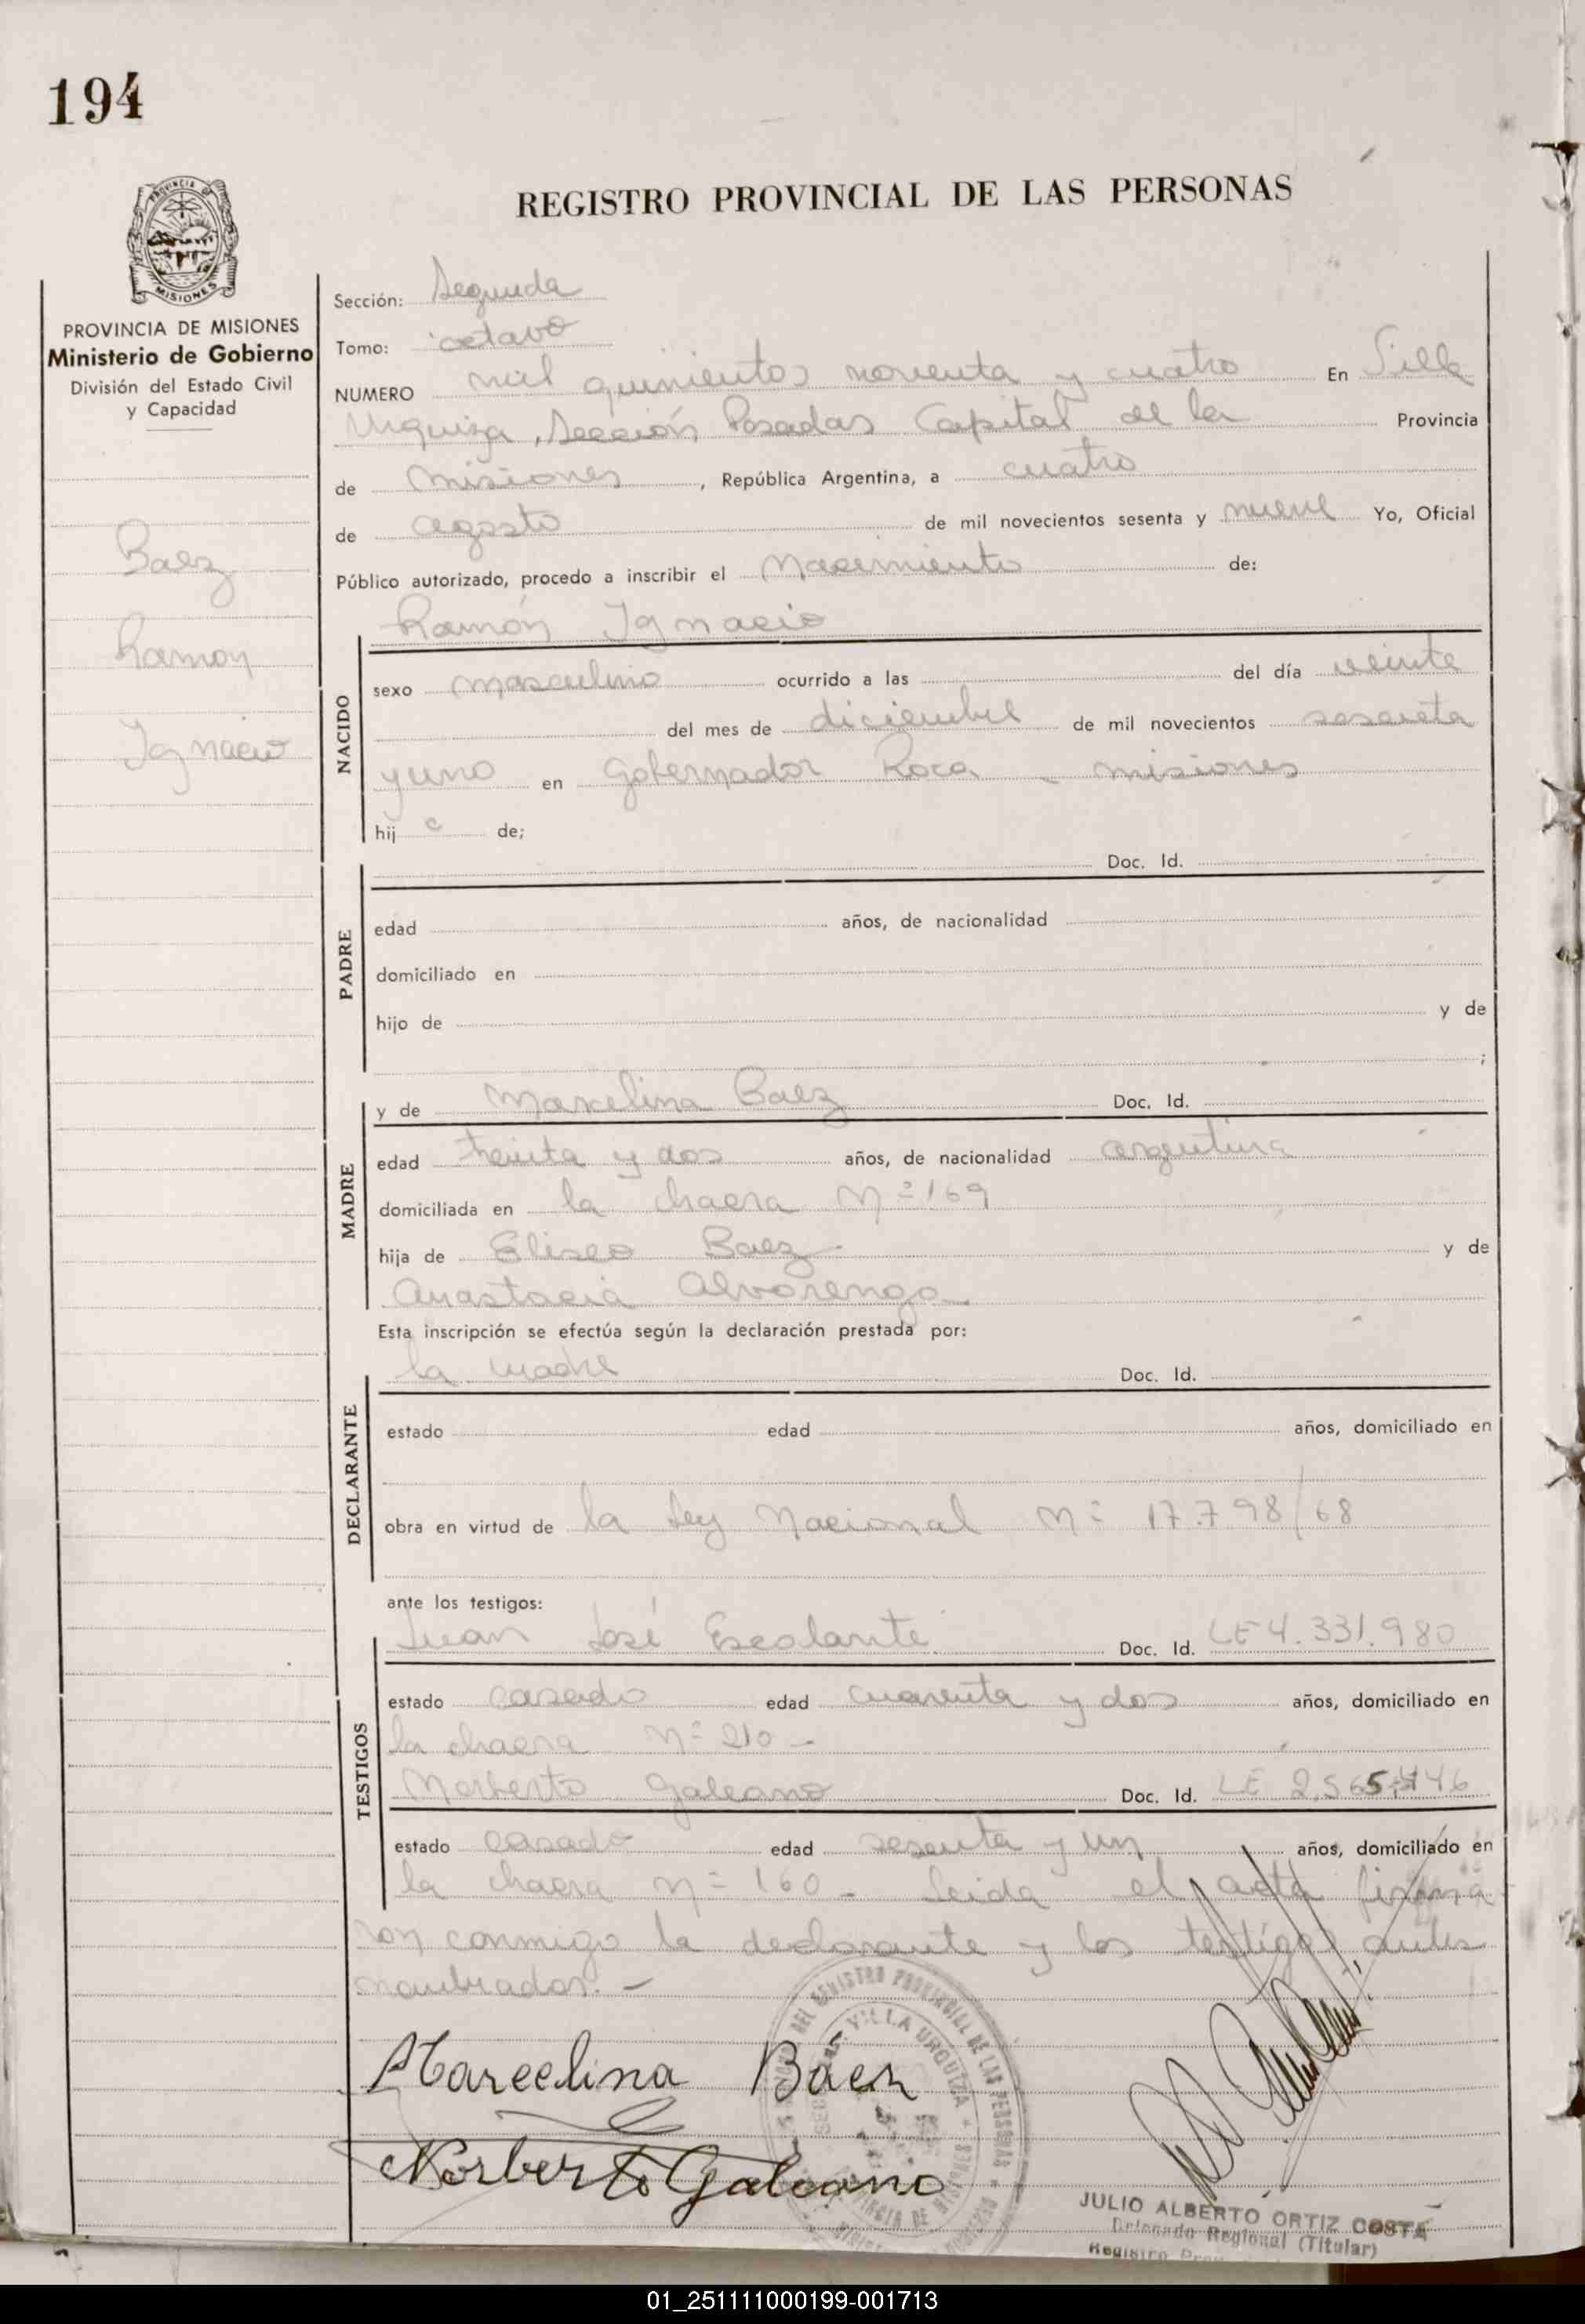 194
PROVINCIA DE
MISIONES
REGISTRO PROVINCIAL DE LAS PERSONAS
PROVINCIA DE MISIONES
Ministerio de Gobierno
División del Estado Civil
y Capacidad
Baez
Ramon
Ignacio
Sección: Segunda
Tomo: octavo
NUMERO mil quinientos noventa y cuatro En Villa
Urquiza, Sección Posadas Capital de la Provincia
de Misiones, República Argentina, a cuatro
de agosto de mil novecientos sesenta y nueve Yo, Oficial
Público autorizado, procedo a inscribir el Nacimiento de:
Ramón Ignacio
NACIDO
sexo masculino ocurrido a las del día veinte
del mes de diciembre de mil novecientos sesenta
y uno en Gobernador Roca - misiones
hijo de;
Doc. Id.
PADRE
edad años, de nacionalidad
domiciliado en
hijo de y de
;
y de Marcelina Baez Doc. Id.
MADRE
edad treinta y dos años, de nacionalidad argentina
domiciliada en la chacra Nº 169
hija de Eliseo Baez y de
Anastacia Alvorenga
Esta inscripción se efectúa según la declaración prestada por:
la madre Doc. Id.
DECLARANTE
estado edad años, domiciliado en
obra en virtud de la Ley Nacional Nº 17.798/68
ante los testigos:
Juan José Escolante Doc. Id. LE 4.331.980
TESTIGOS
estado casado edad cuarenta y dos años, domiciliado en
la chacra Nº 210 -
Norberto Galeano Doc. Id. LE 2.565.446
estado casado edad sesenta y un años, domiciliado en
la chacra Nº 160 - Leida el acta firma
ron conmigo la declarante y los testigos antes
nombrados. -
Marcelina Báez
Norberto Galeano
REGISTRO PROVINCIAL DE LAS PERSONAS
VILLA URQUIZA
JULIO ALBERTO ORTIZ COSTA
Delegado Regional (Titular)
Registro
01_251111000199-001713